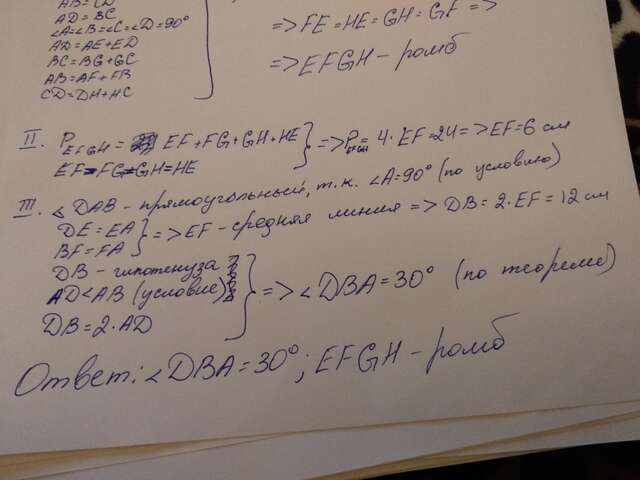 AB = CD
AD = BC
∠A=∠B=∠C=∠D=90°
AD = AE+ED
BC = BG+GC
AB = AF+FB
CD = DH+HC
=> FE = HE = GH = GF =>
=> EFGH – ромб
II. P EFGH = EF+FG+GH+HE
EF=FG=GH=HE
=> P = 4·EF=24 => EF=6 см
III. ∠DAB – прямоугольный, т.к. ∠A=90° (по условию)
DE = EA
BF = FA
=> EF – средняя линия => DB = 2·EF = 12 см
DB – гипотенуза
AD < AB (условие)
DB = 2·AD
=> ∠DBA = 30° (по теореме)
Ответ: ∠DBA = 30°; EFGH – ромб